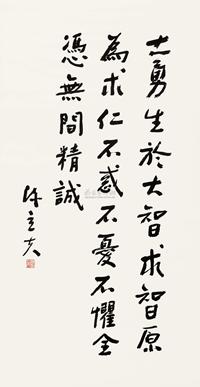 大勇生於大智求智原
為求仁不惑不憂不懼全
憑無間精誠
陳立夫